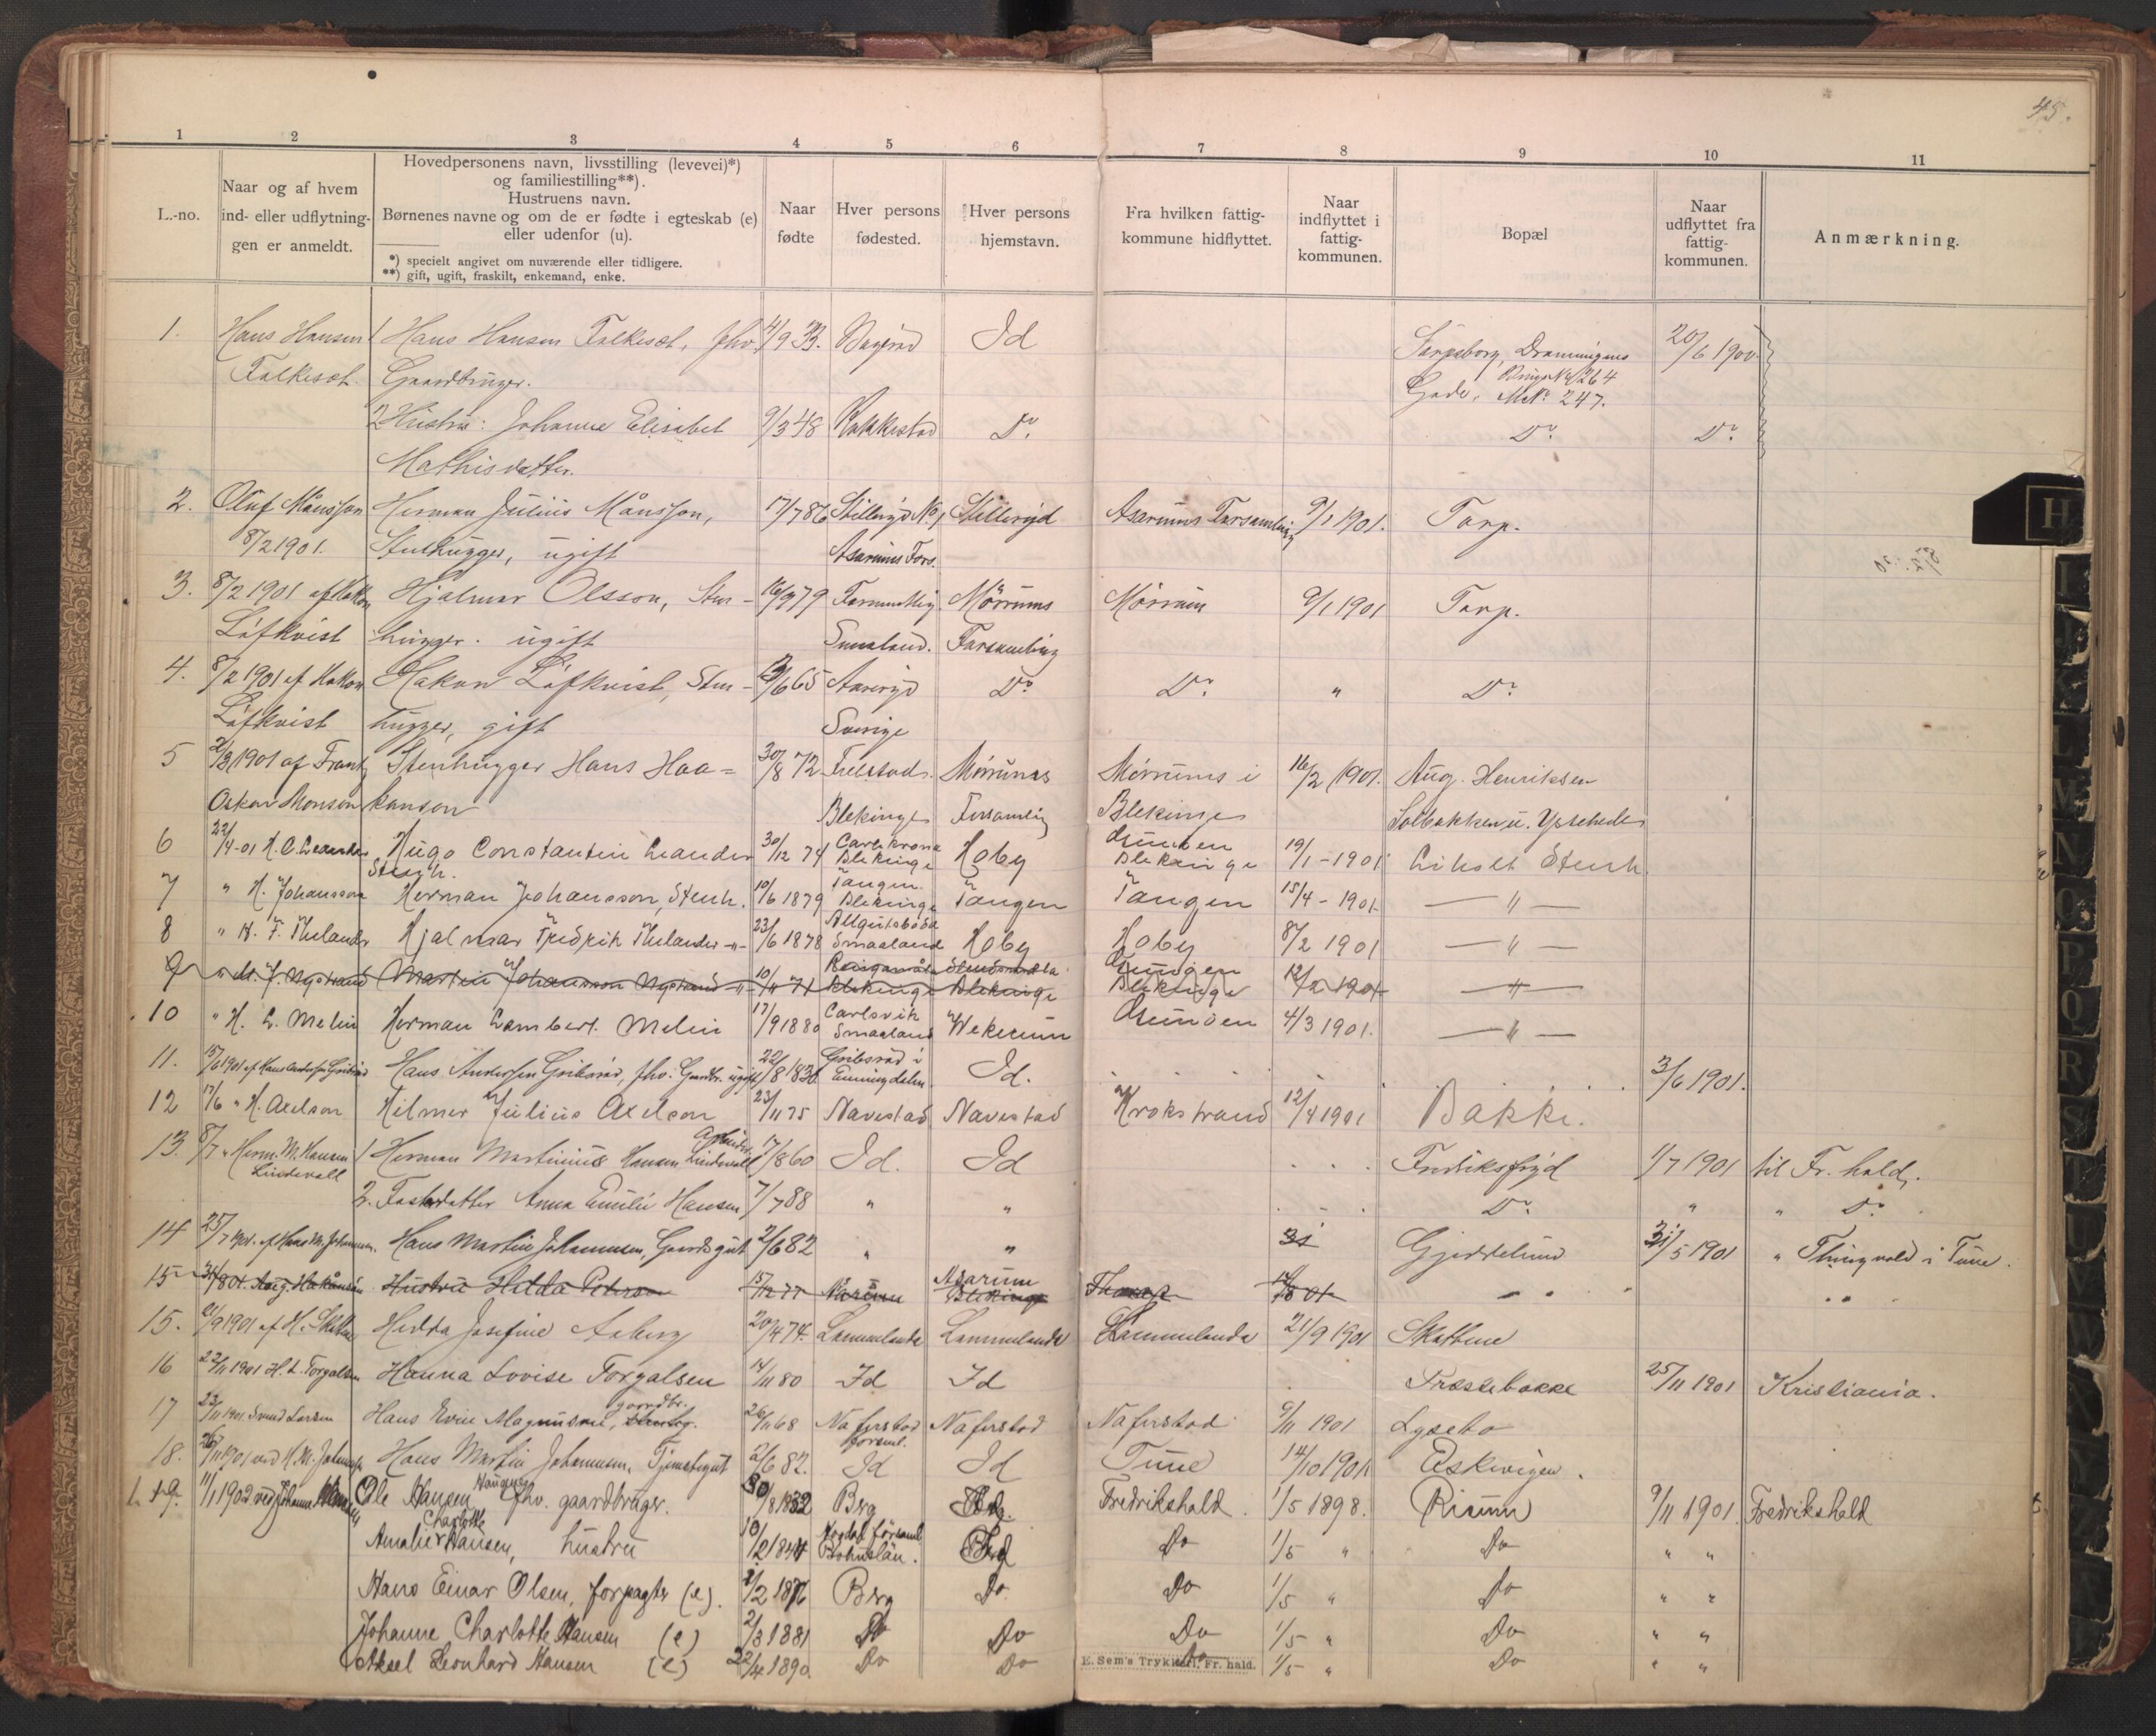 45.
1 2 3 4 5 6 7 8 9 10 11
L.-no.
Naar og af hvem
ind- eller udflytnin-
gen er anmeldt.
Hovedpersonens navn, livsstilling (levevei)*)
og familiestilling**).
Hustruens navn.
Børnenes navne og om de er fødte i egteskab (e)
eller udenfor (u).
*) specielt angivet om nuværende eller tidligere.
**) gift, ugift, fraskilt, enkemand, enke.
Naar
fødte
Hver persons
fødested.
Hver persons
hjemstavn.
Fra hvilken fattig-
kommune hidflyttet.
Naar
indflyttet i
fattig-
kommunen.
Bopæl
Naar
udflyttet fra
fattig-
kommunen.
Anmærkning.
1. Hans Hansen 1 Hans Hansen Falkesæt, fhv. 4/9 33. Id Sarpsborg, 20/6 1900
Falkesæt. Gaardbruger. Gade, M.No. 247.
2 Hustru: Johanne Elisabet 9/3 48 Rakkestad Do. Do. Do.
Mathisdatter.
2. Oluf Månsson Herman Julius Månsson, 17/7 86 Stilleryd No 1 Stilleryd Asarums Forsamling 9/1 1901. Torp.
8/2 1901. Stenhugger, ugift Asarums Fors.
3. 8/2 1901 af Hakon Hjalmar Olsson, Sten- 79 Mörrums Mörrum 9/1 1901 Torp.
Löfkvist hugger. ugift Smaland. Forsamling
4. 8/2 1901 af Hakon Hakon Löfkvist, Sten- 65 Do. Do. " Do.
Löfkvist hugger, gift Sverige
5 1901 af Frantz Stenhugger Hans Haa= 30/8 72 Mörrums Mörrums i 16/2 1901. Aug. Henriksen
Oskar Monson kanson Blekinge Forsamlig Blekinge Solbakken u. Ystehede
6 22/4-01 H. C. Leander Hugo Constantin Leander 30/12 74 Carlskrona Blekinge Hoby Blekinge 19/1-1901 Liholt Stenh.
Stenh.
7 " H. Johansson Herman Johansson, Stenh. 10/6 1879 Tangen Blekinge Tangen Tangen 15/4-1901. — " —
8 " H. F. Thelander Hjalmar Fredrik Thelander -"- 23/6 1878 Smaaland Hoby Hoby 8/2 1901 — " —
9 " M. J. Nystrand Martin Johansson Nystrand -"- 10/11 71 Blekinge Blekinge Blekinge 12/2 1901 — " —
10 " H. L. Melin Herman Lambert Melin 17/9 1880 Carlsvik Smaaland Wekerum 4/3 1901. — " —
11. 15/6 1901 af Hans Andersen Hans Andersen fhv. Gaardbr. ugift 22/8 1836 Enningdalen Id. 3/6 1901.
12 17/6 " H. Axelson Hilmer Julius Axelson 23/11 75 Navestad Navestad Krokstrand 12/4 1901 Bakke.
13. 8/7 " Herm. M. Hansen 1 Herman Martinius Hansen Lindevall 17/8 60 Id. Id Fredriksfryd 1/7 1901 til Fr.hald.
Lindevall Arbeider
2. Fosterdatter Anna Emilie Hansen 7/7 88 " " Do. " " Do.
14 25/7 1901. af Hans M. Johannesen. Hans Martin Johannesen, Gaardsgut 2/6 82 " " Gjeddelund 31/5 1901 " Thingvold i Tune.
15 31/8 01. Aug. Hakansson Hustru Hilda Peterson 15/12 77 Asarum Blekinge
15. 21/9 1901 Hedda Josefine Aaberg 20/4 74. Lommelanda Lommelanda Lommelanda 21/9 1901 Skattene
16 22/11 1901 H. L. Torgalsen Hanna Lovise Torgalsen 14/11 80 Id Id Præstebakke 25/11 1901 Kristiania.
17 23/11 1901 Svend Larsen Hans Evin Magnusen, gaardbr. 26/11 68 Naferstad forsml. Naferstad Naferstad 9/11 1901 Lysebo
18. 26/11 1901 ved H. M. Johannesen Hans Martin Johannesen, Tjenestegut 2/6 82. Id Id Tune 14/10 1901. Eskevigen.
19. 11/1 1902 ved Johanne Hansen Ole Hansen fhv. gaardbruger. 30/8 1832 Berg Fredrikshald. 1/5 1898. Risum 9/11 1901. Fredrikshald
Amalie Charlotte Hansen, hustru 10/2 1844 Bohuslän. Do 1/5 " Do " "
Hans Einar Olsen, forpagter (e). 2/2 1876 Berg Do Do 1/5 " Do " "
Johanne Charlotte Hansen (e) 2/3 1881 Do Do Do 1/5 " Do " "
Aksel Leonhard Hansen (e) 22/4 1890. Do Do Do 1/5 " Do " "
E. Sem's Trykkeri, Fr.hald.
H
I
K
L
M
N
O
P
Q
R
S
T
U
V